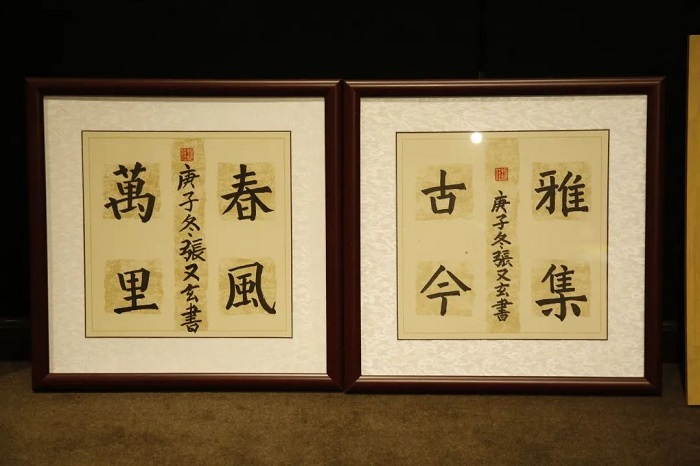 春風
萬里
庚子冬張又玄書
雅集
古今
庚子冬張又玄書